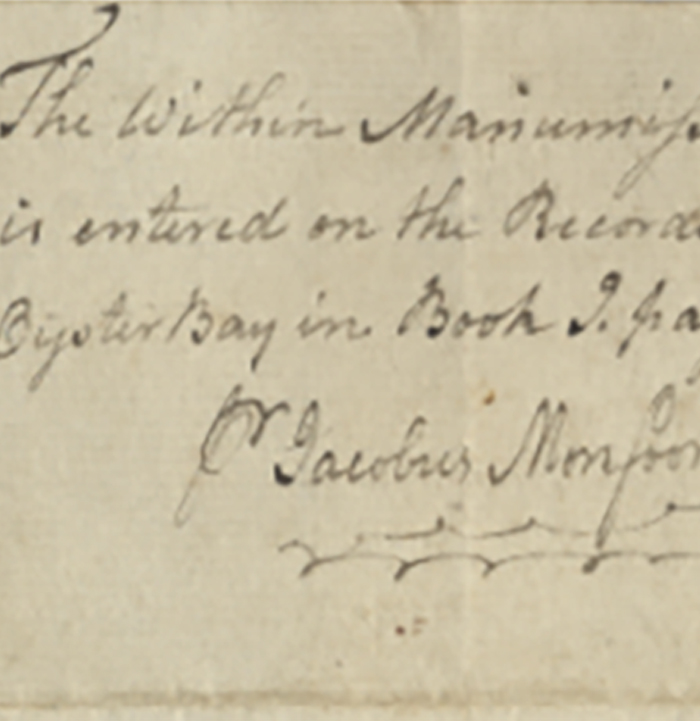 The Within Manumiss
is entered on the Record
Oyster Bay in Book I. pa
pr Jacobus Monfoor